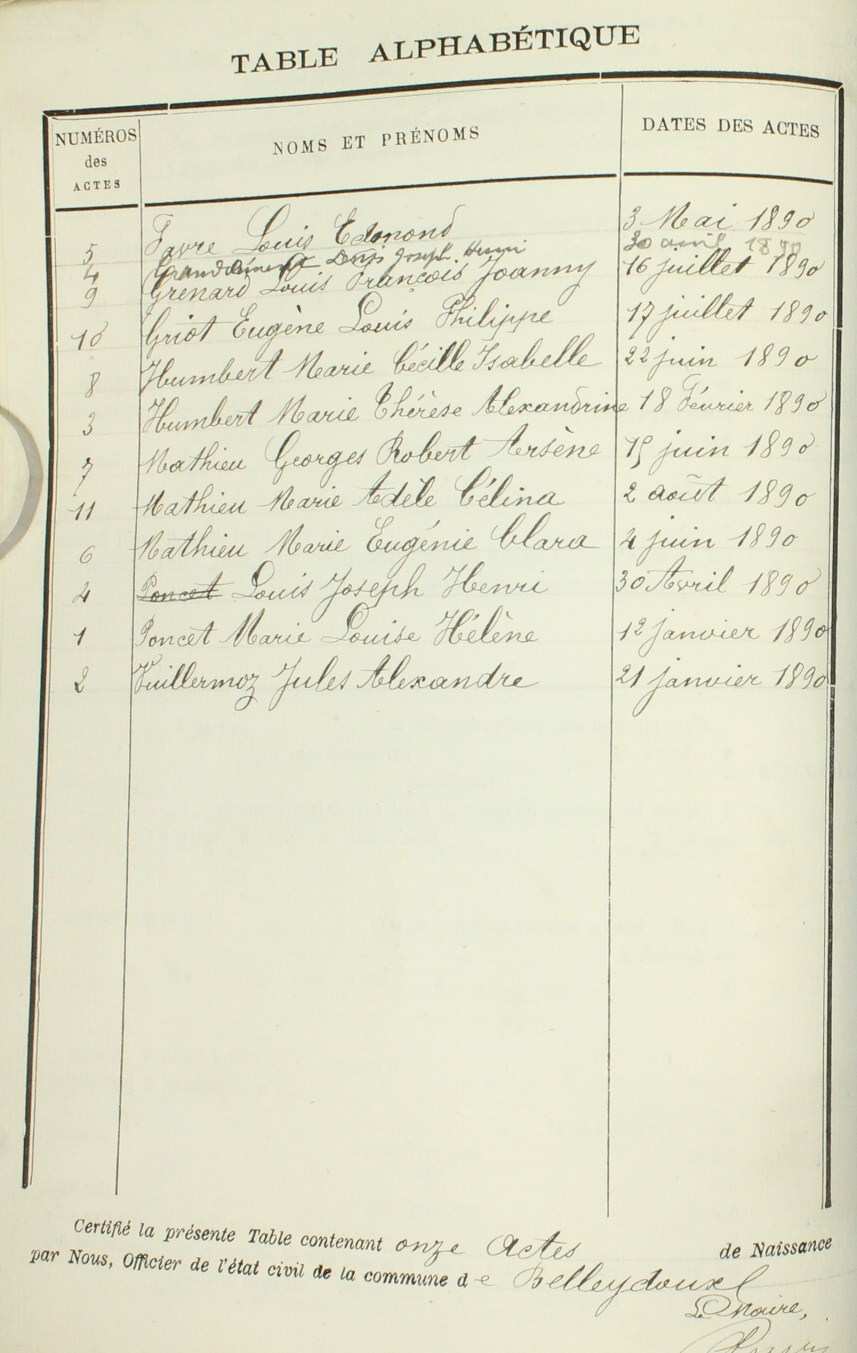 TABLE ALPHABÉTIQUE
NUMÉROS des ACTES NOMS ET PRÉNOMS DATES DES ACTES
5 Favre Louis Edmond 3 Mai 1890
4 Grandclément Louis Joseph Henri 30 avril 1890
9 Grenard Louis François Joanny 16 juillet 1890
10 Griot Eugène Louis Philippe 17 juillet 1890
8 Humbert Marie Cécille Isabelle 22 juin 1890
3 Humbert Marie Thérèse Alexandrine 18 Février 1890
7 Mathieu Georges Robert Arsène 15 juin 1890
11 Mathieu Marie Adèle Célina 2 août 1890
6 Mathieu Marie Eugénie Clara 4 juin 1890
4 Poncet Louis Joseph Henri 30 Avril 1890
1 Poncet Marie Louise Hélène 12 janvier 1890
2 Vuillermoz Jules Alexandre 21 janvier 1890
Certifié la présente Table contenant onze Actes de Naissance
par Nous, Officier de l'état civil de la commune de Belleydoux
Le Maire,